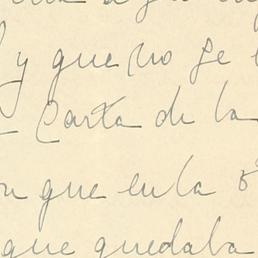 y que no se
Carta de la
que en la
que quedaba